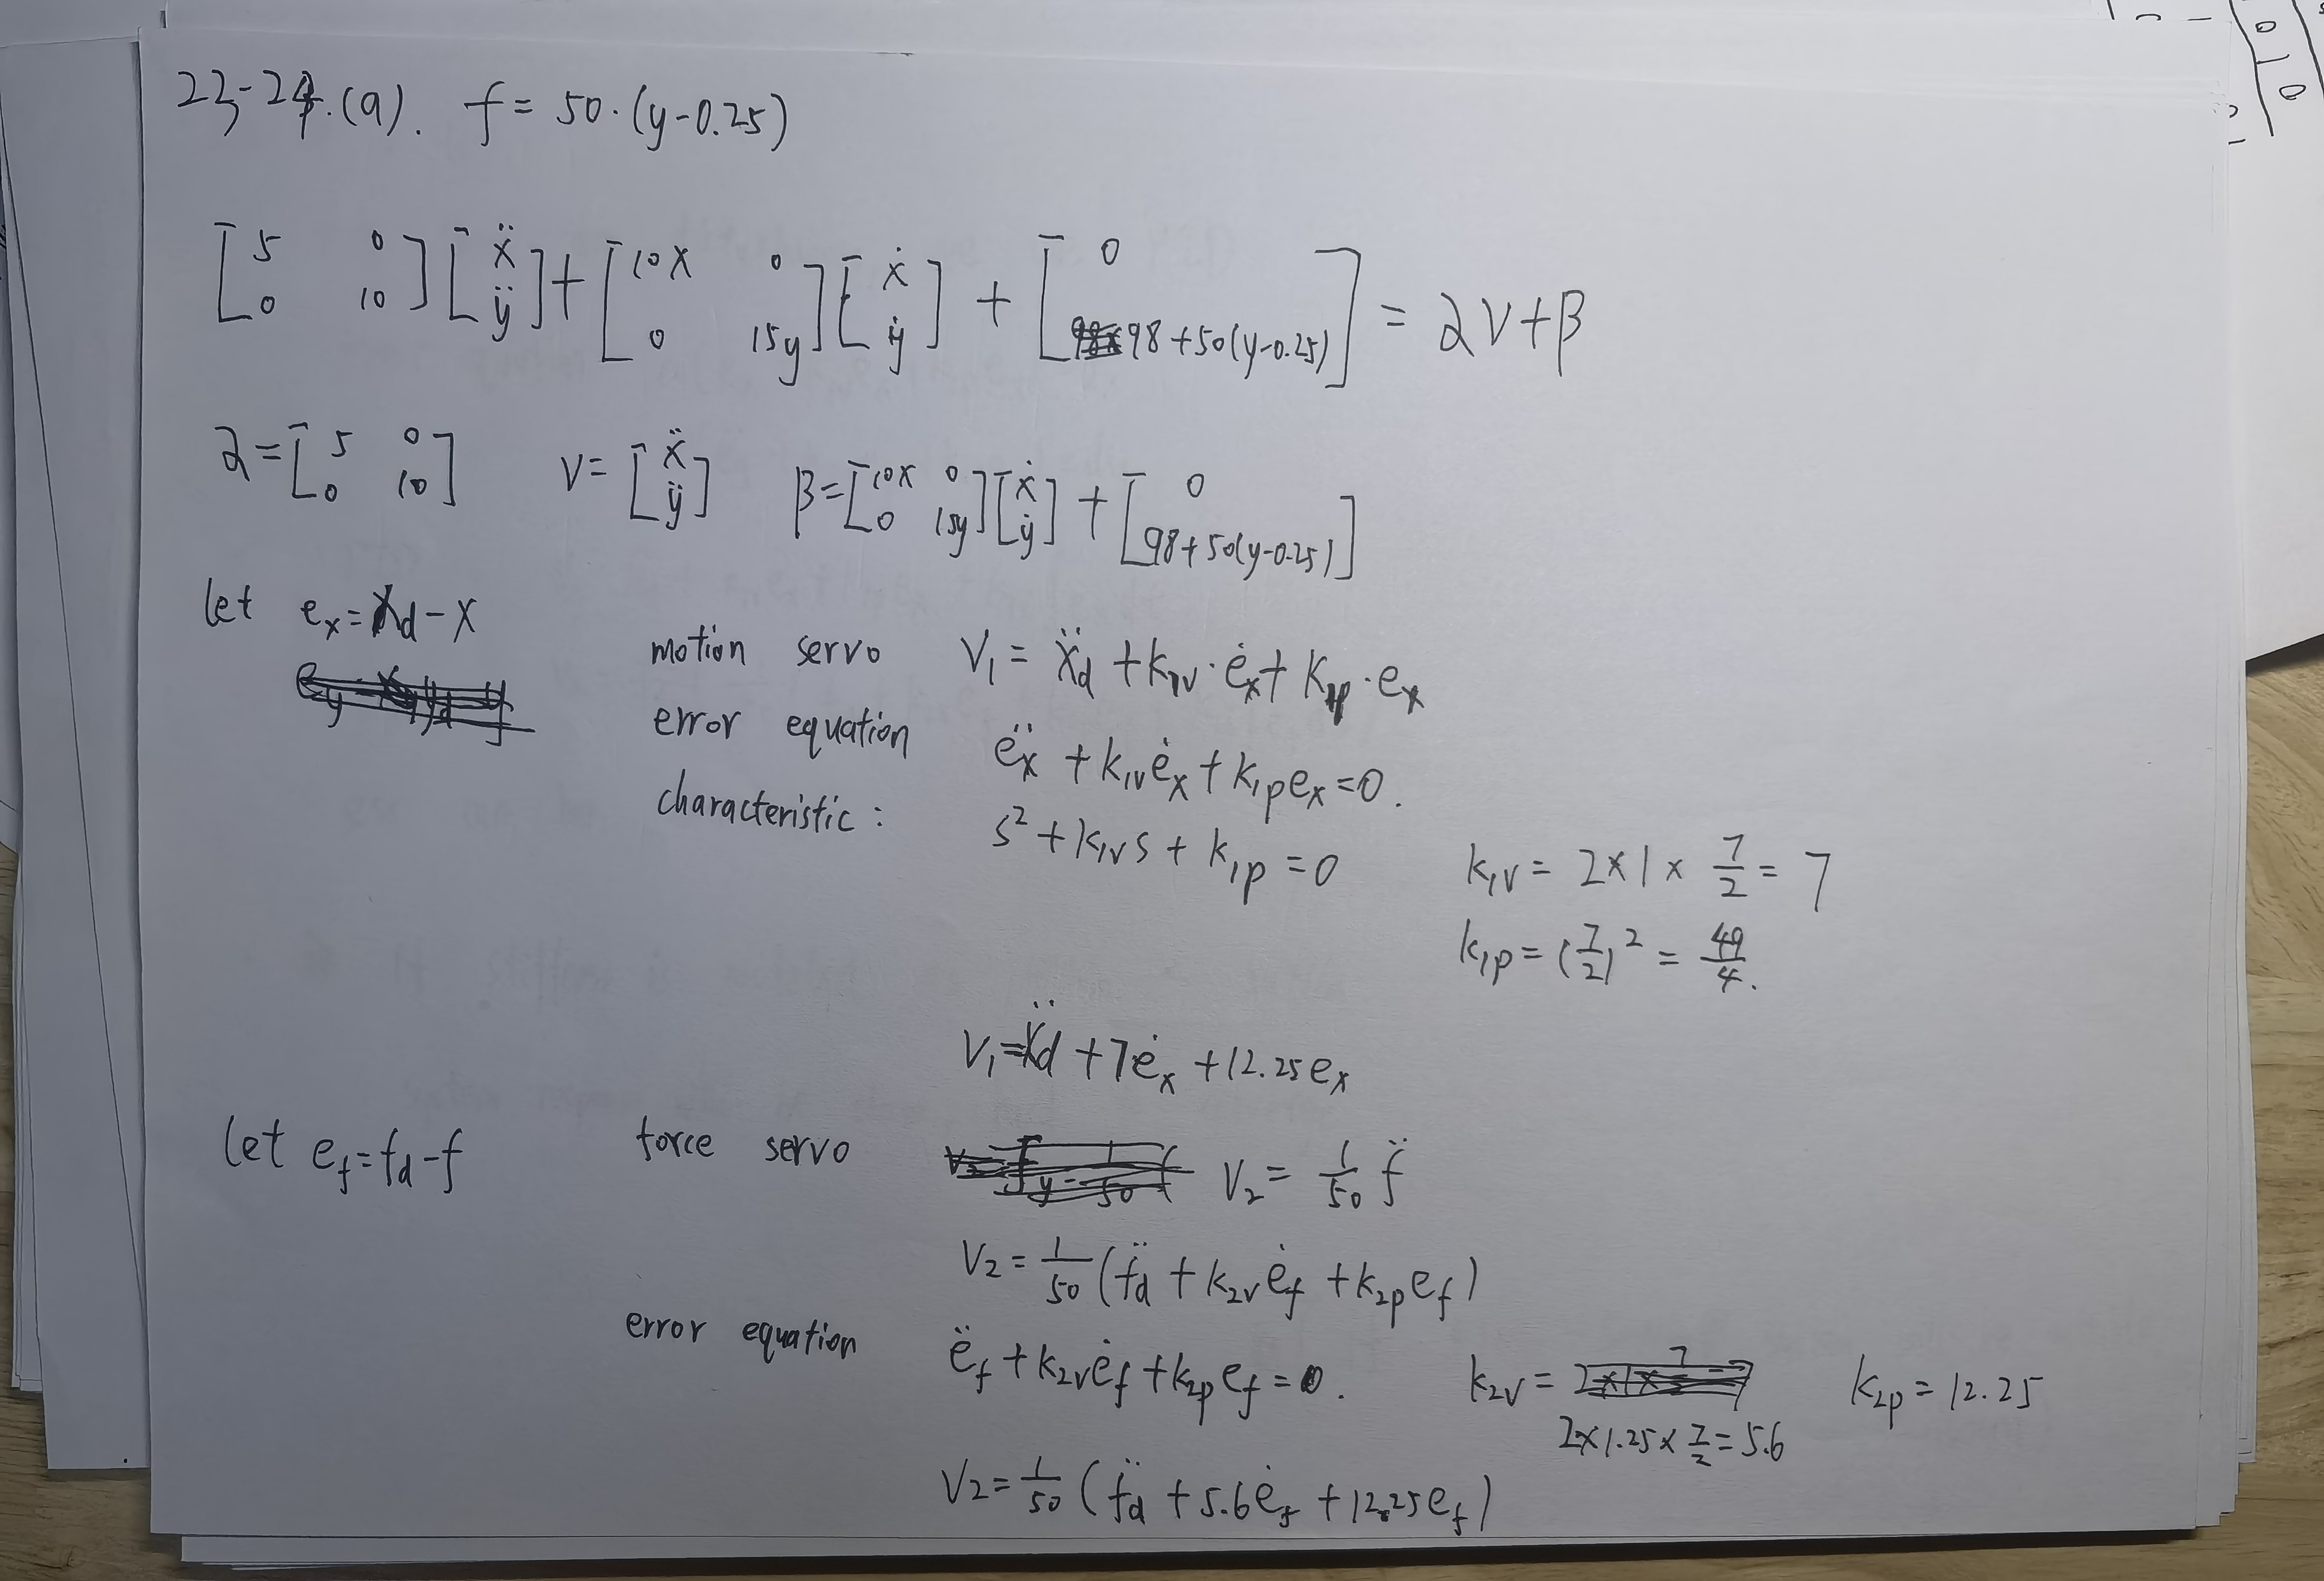 23-24.(a). f = 50·(y-0.25)
[5 0; 0 10][ẍ; ÿ] + [10x 0; 0 15y][ẋ; ẏ] + [0; 98+50(y-0.25)] = αV+β
α=[5 0; 0 10] V=[ẍ; ÿ] β=[10x 0; 0 15y][ẋ; ẏ] + [0; 98+50(y-0.25)]
let eₓ=Xd-X
motion servo V₁ = ẍd + k₁ᵥ·ėₓ + k₁p·eₓ
error equation ëₓ + k₁ᵥėₓ + k₁peₓ=0.
characteristic: s² + k₁ᵥs + k₁p = 0
k₁ᵥ = 2×1×7/2 = 7
k₁p = (7/2)² = 49/4.
V₁=ẍd + 7ėₓ + 12.25eₓ
let e_f=fd-f force servo V₂ = 1/50 f̈
V₂ = 1/50 (f̈d + k₂ᵥė_f + k₂pe_f)
error equation ë_f + k₂ᵥė_f + k₂pe_f = 0. k₂ᵥ = k₂p = 12.25
2×1.25×7/2=5.6
V₂= 1/50 (f̈d + 5.6ė_f + 12.25e_f)